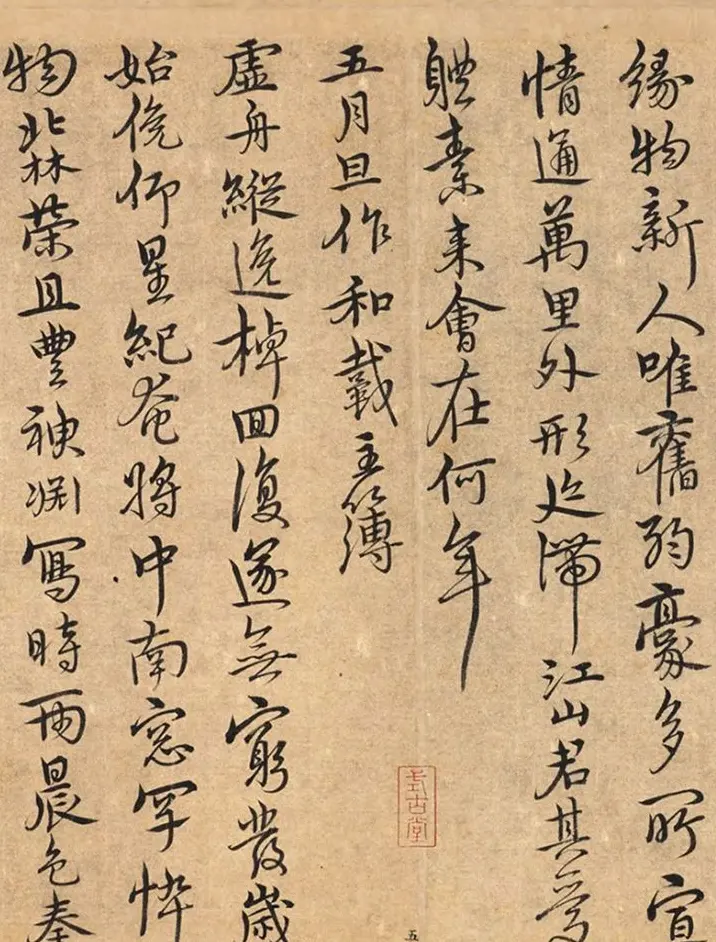 緣物新人唯舊弱豪多所宣
情通萬里外形迹滯江山君其愛
體素来會在何年
五月旦作和戴主簿
虛舟縱逸棹回復遂無窮發歲
始俛仰星紀奄將中南窓罕悴
物北林榮且豐神渊寫時雨晨色奏
考古堂
五